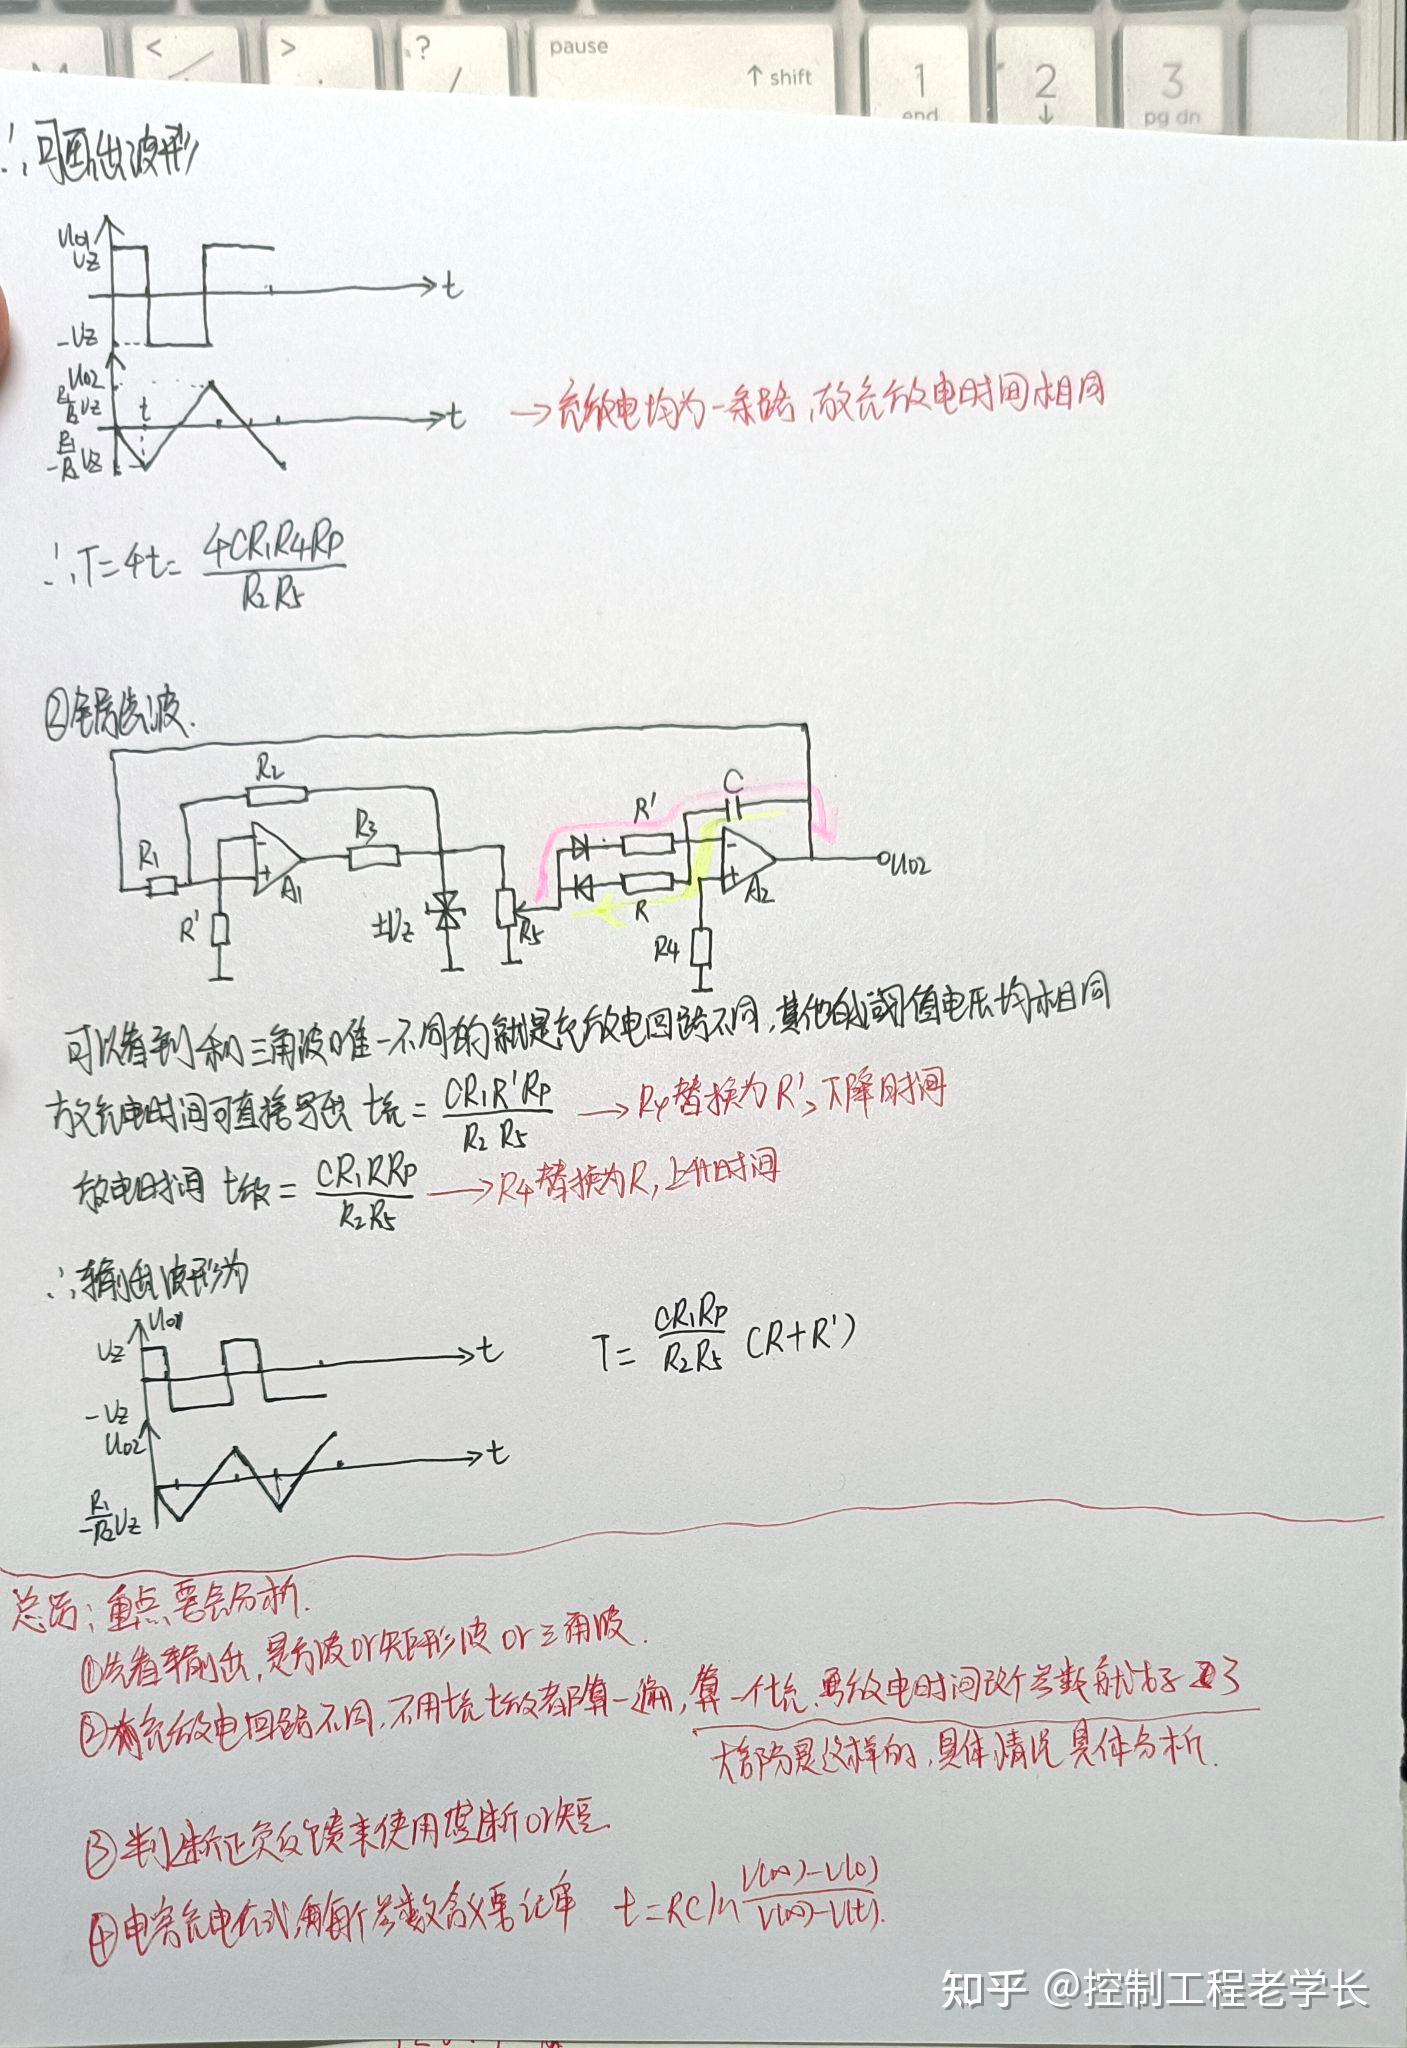 <
>
?
/
pause
↑ shift
1
end
2
↓
3
pg dn
∴可画出波形
U01
UZ
t
-UZ
U02
R1/R2 UZ
t
t
-R1/R2 UZ
→充放电均为一条路,故充放电时间相同
∴T=4t= 4CR1R4RP / R2R5
②锯齿波.
R2
R1
R3
A1
R'
±UZ
R5
R'
C
R
A2
R4
U02
可以看到和三角波唯一不同的就是充放电回路不同,其他的阈值电压均相同
故充电时间可直接写出 t充= CR1R'RP / R2R5 →R4替换为R',下降时间
放电时间 t放= CR1RRP / R2R5 →R4替换为R,上升时间
∴输出波形为
U01
UZ
t
-UZ
T= CR1RP / R2R5 (R+R')
U02
t
-R1/R2 UZ
总结:重点要会分析.
①先看输出,是方波or矩形波or三角波.
②有充放电回路不同,不用t充t放都算一遍,算一个t充.再放电时间改个参数就好了
大部分是这样的,具体情况具体分析.
③判断正负反馈来使用虚断or短.
④电容充电公式,每个参数含义要记牢 t=RC ln V(∞)-V(0) / V(∞)-V(t).
知乎 @控制工程老学长